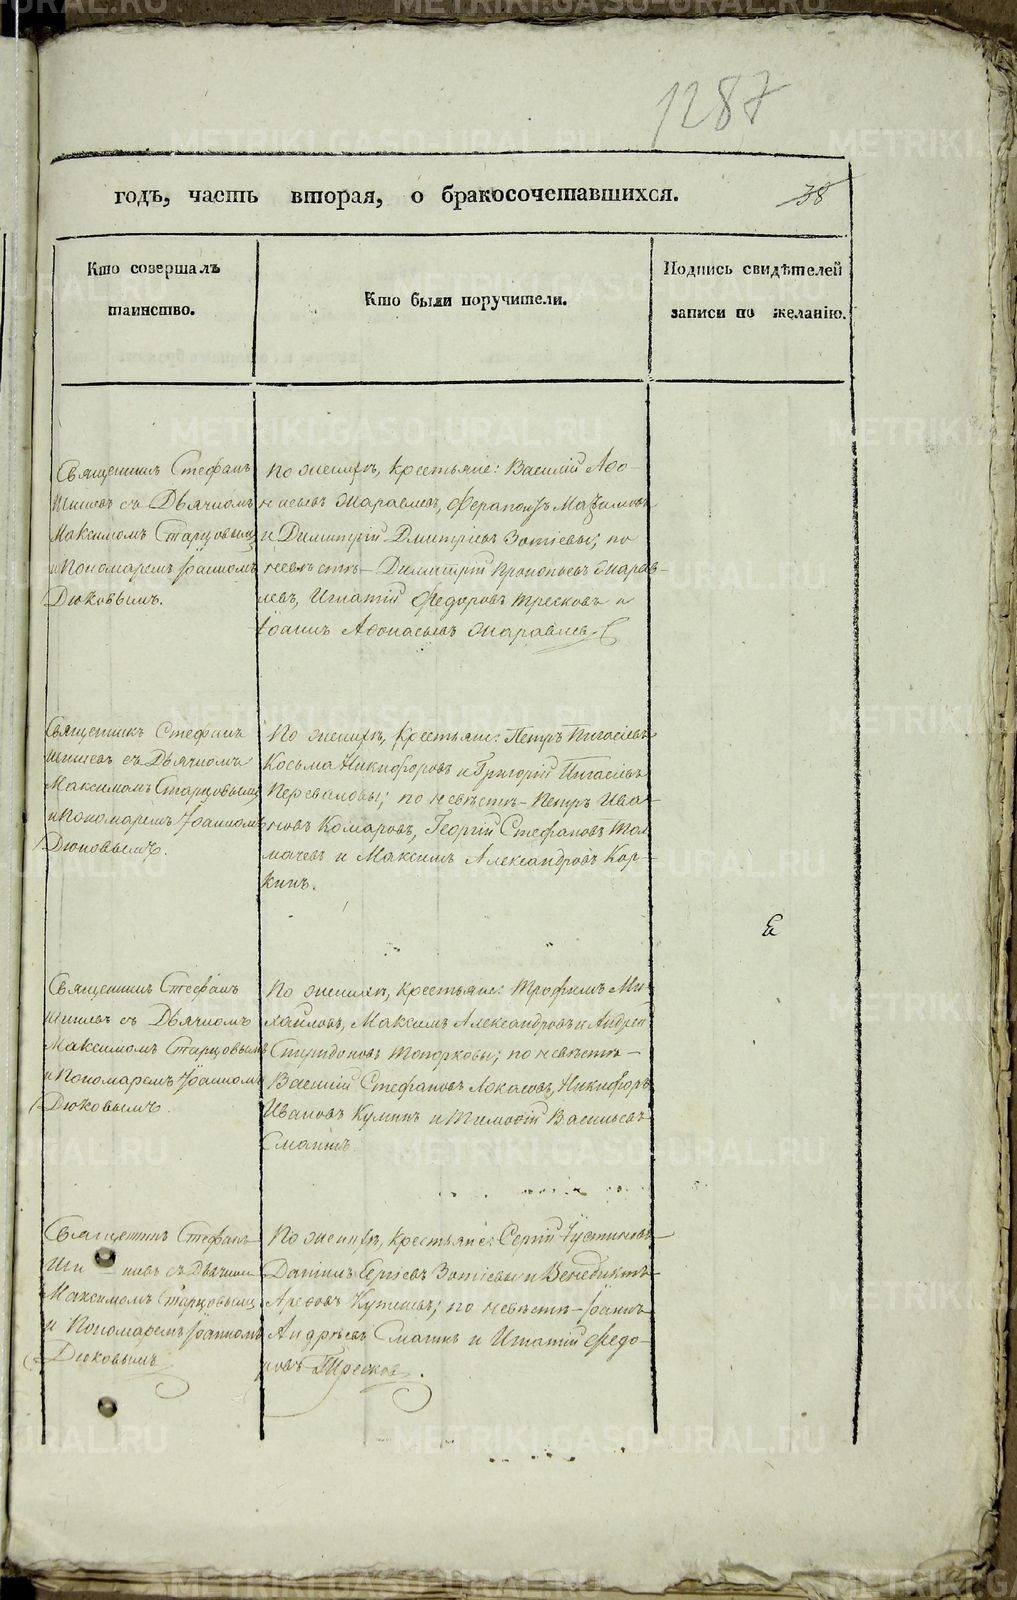 1287
годъ, часть вторая, о бракосочетавшихся.
38
Кто совершалъ
таинство.
Кто были поручители.
Подпись свидѣтелей
записи по желанію.
Священникъ Стефанъ
съ Дьячкомъ
Максимомъ Старцовымъ
и Пономаремъ Іоанномъ
Дюковымъ.
По женихѣ, крестьяне: Василій Аѳо-
насьевъ Журавлевъ, Ферапонтъ
и Димитрій Дмитріевъ Зотѣевы; по
невѣстѣ – Димитрій Прокопьевъ Журав-
левъ, Игнатій Федоровъ Тресковъ и
Іоаннъ Аѳонасьевъ Журавлевъ.
Священникъ Стефанъ
съ Дьячкомъ
Максимомъ Старцовымъ
и Пономаремъ Іоанномъ
Дюковымъ.
По женихѣ, крестьяне: Петръ Пигасіевъ
Косьма Никифоровъ и Григорій Пигасіевъ
Переваловы; по невѣстѣ – Петръ Ива-
новъ Комаровъ, Георгій Стефановъ Тол-
мачевъ и Максимъ Александровъ Кор-
кинъ.
Священникъ Стефанъ
съ Дьячкомъ
Максимомъ Старцовымъ
и Пономаремъ Іоанномъ
Дюковымъ.
По женихѣ, крестьяне: Трофимъ Ми-
хайловъ, Максимъ Александровъ и Андрей
Спиридоновъ Топорковы; по невѣстѣ –
Василій Стефановъ Никифоръ
Ивановъ и Тимоѳей Васильевъ
Смагинъ.
Священникъ Стефанъ
съ Дьячкомъ
Максимомъ Старцовымъ
и Пономаремъ Іоанномъ
Дюковымъ.
По женихѣ, крестьяне: Сергій Іустиновъ
Даніилъ Сергіевъ Зотѣевы и Венедиктъ
по невѣстѣ – Іоаннъ
Андреевъ Смагинъ и Игнатій Федо-
ровъ Тресковъ.
METRIKI.GASO-URAL.RU